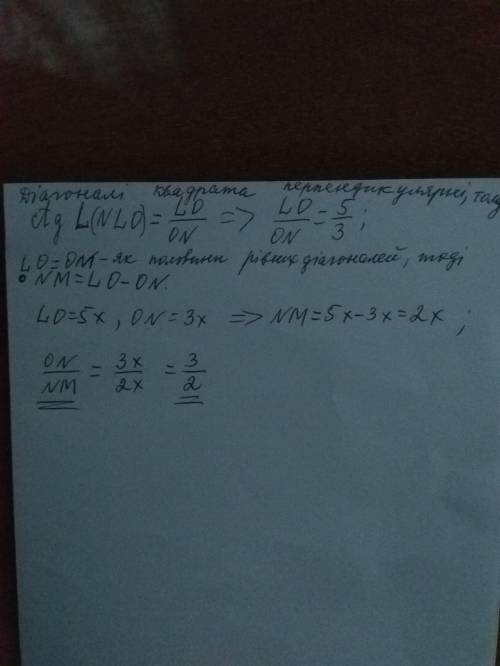 Діагоналі квадрата перпендикулярні, тому
tg L(NLO) = LO/ON => LO/ON = 5/3 ;
LO=OM – як половини рівних діагоналей, тоді
NM = LO - ON.
LO=5x, ON=3x => NM=5x-3x=2x ;
ON/NM = 3x/2x = 3/2